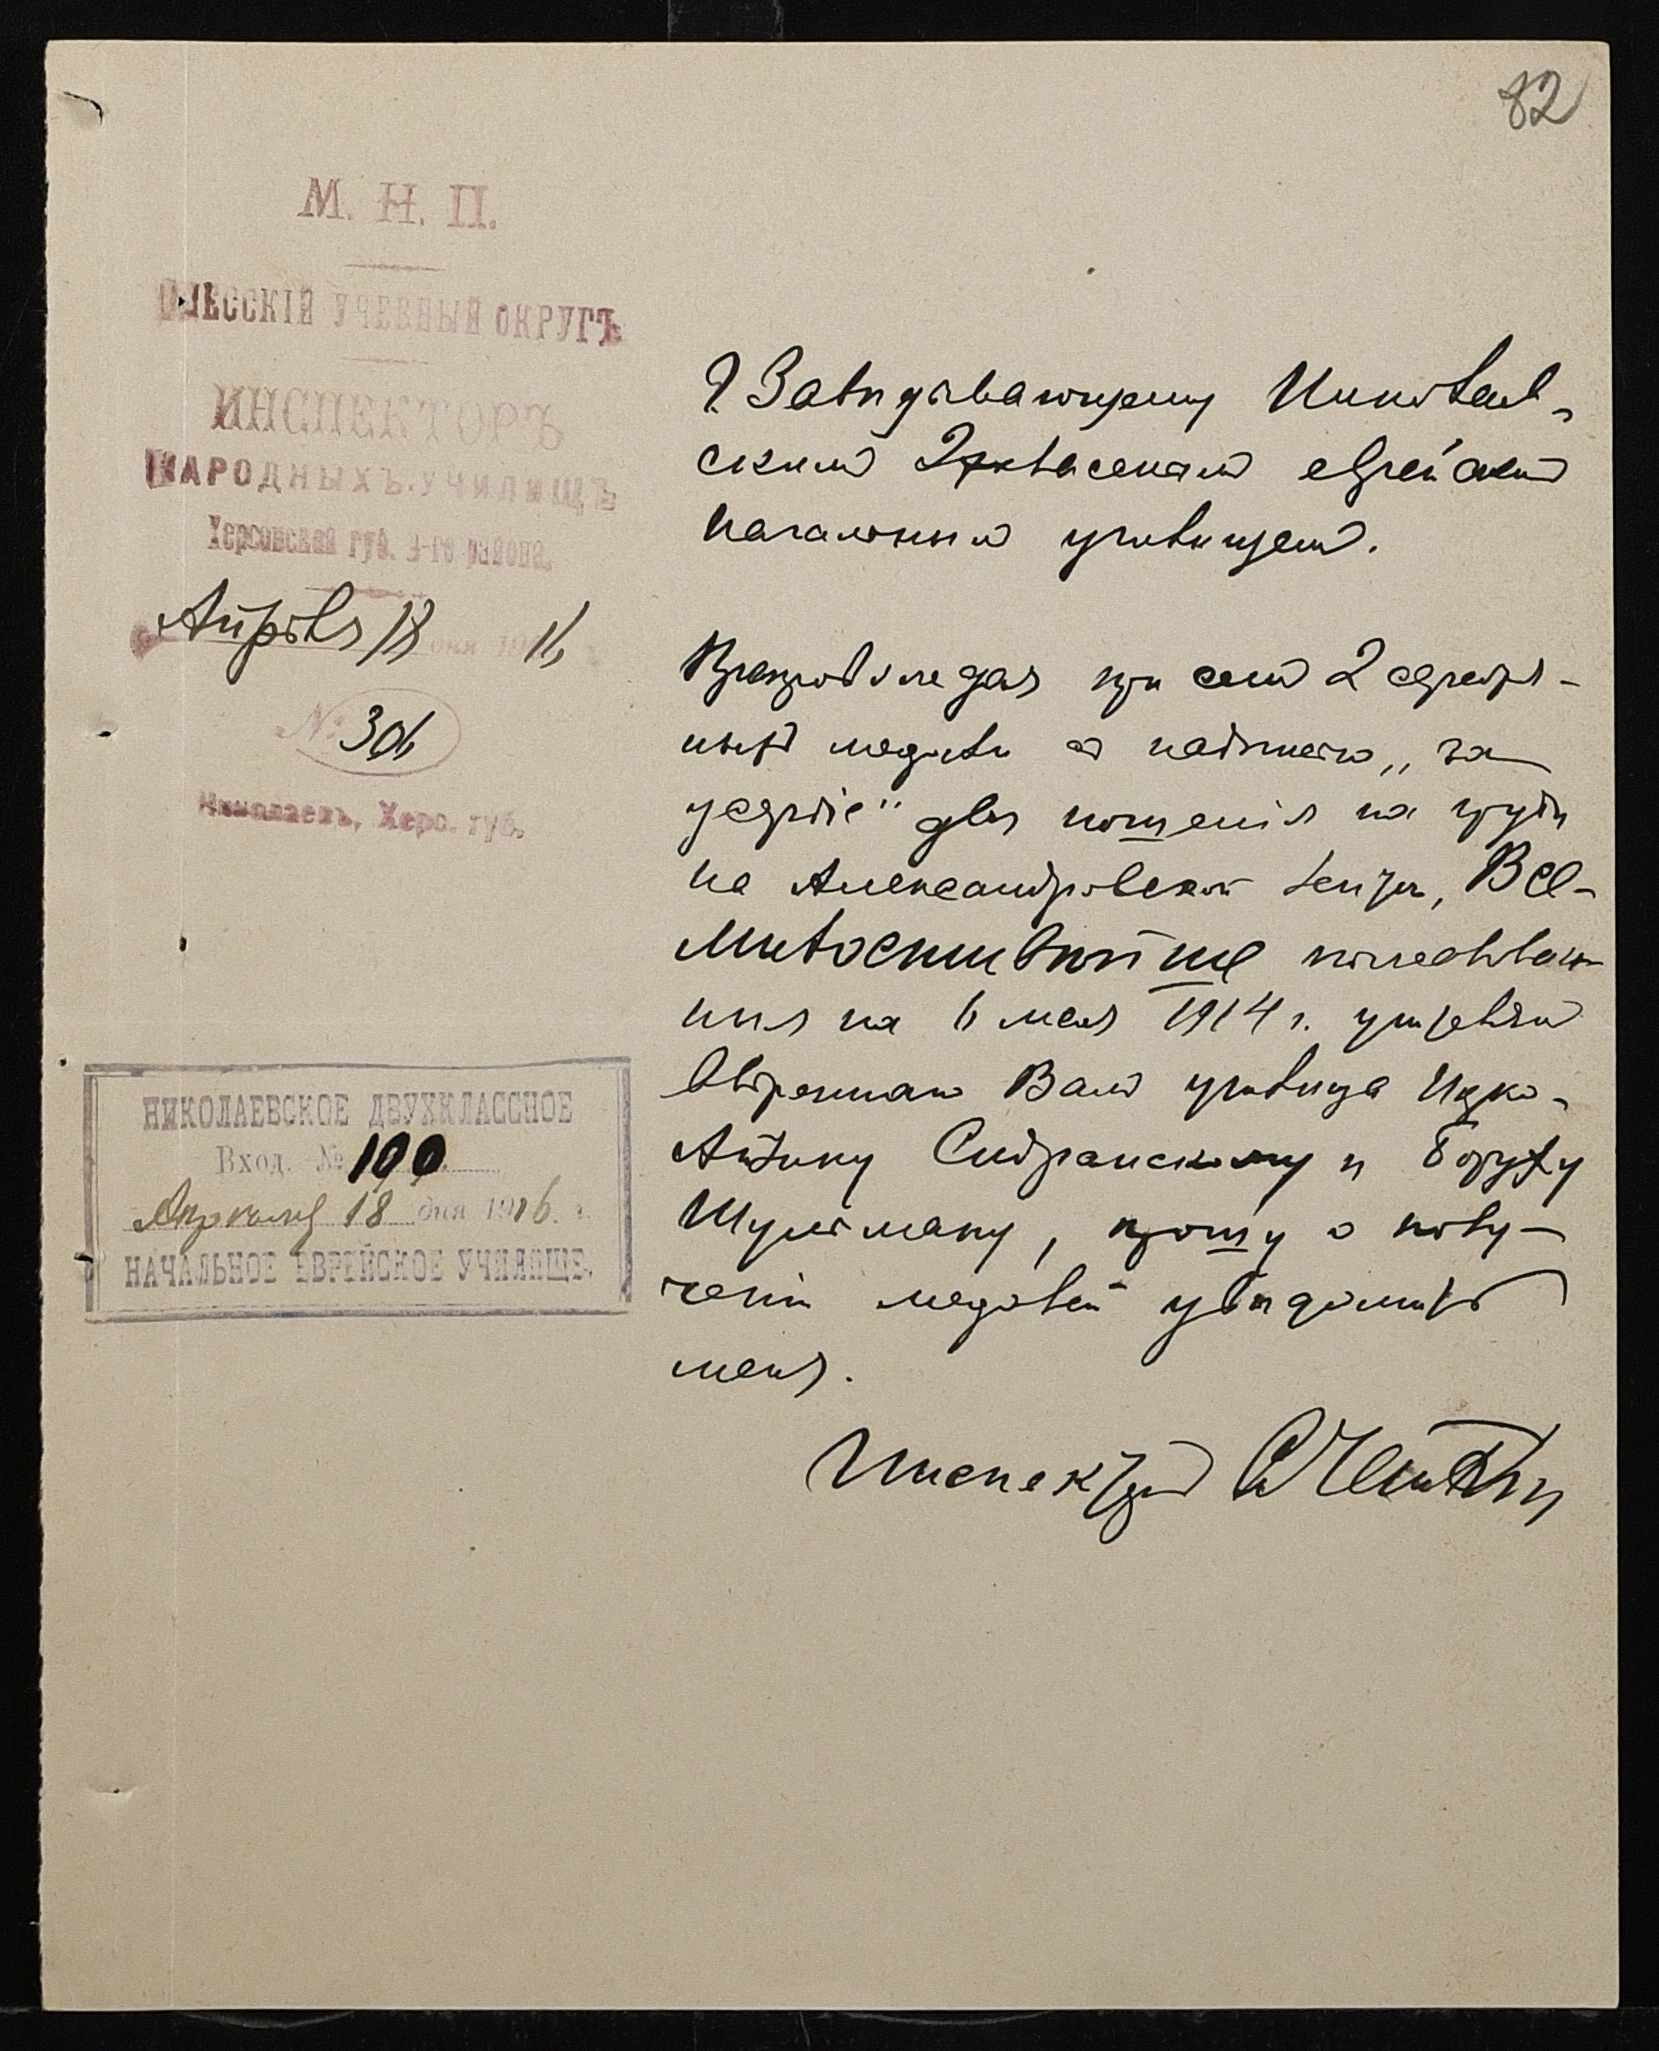 82
М. Н. П.
ОДЕССКІЙ УЧЕБНЫЙ ОКРУГЪ
ИНСПЕКТОРЪ
НАРОДНЫХЪ УЧИЛИЩЪ
Херсонской губ. 3-го района.
Апрѣля 18 дня 1916
№ 306
Николаевъ, Херс. губ.
Г Завѣдывающему Николаев-
скимъ 2хкласснымъ еврейскимъ
начальнымъ училищемъ.
Препровождая при семъ 2 серебря-
ныхъ медали съ надписью „за
усердіе" для ношенія на груди
на Александровской лентѣ, Все-
милостивѣйше пожалован-
ныя на 6 мая 1914 г. учителямъ
ввѣреннаго Вамъ училища Ицко-
Сидранскому и Боруху
Шульману, прошу о полу-
ченіи медалей увѣдомить
меня.
Инспекторъ
НИКОЛАЕВСКОЕ ДВУХКЛАССНОЕ
Вход. № 190
Апрѣля 18 дня 1916 г.
НАЧАЛЬНОЕ ЕВРЕЙСКОЕ УЧИЛИЩЕ.